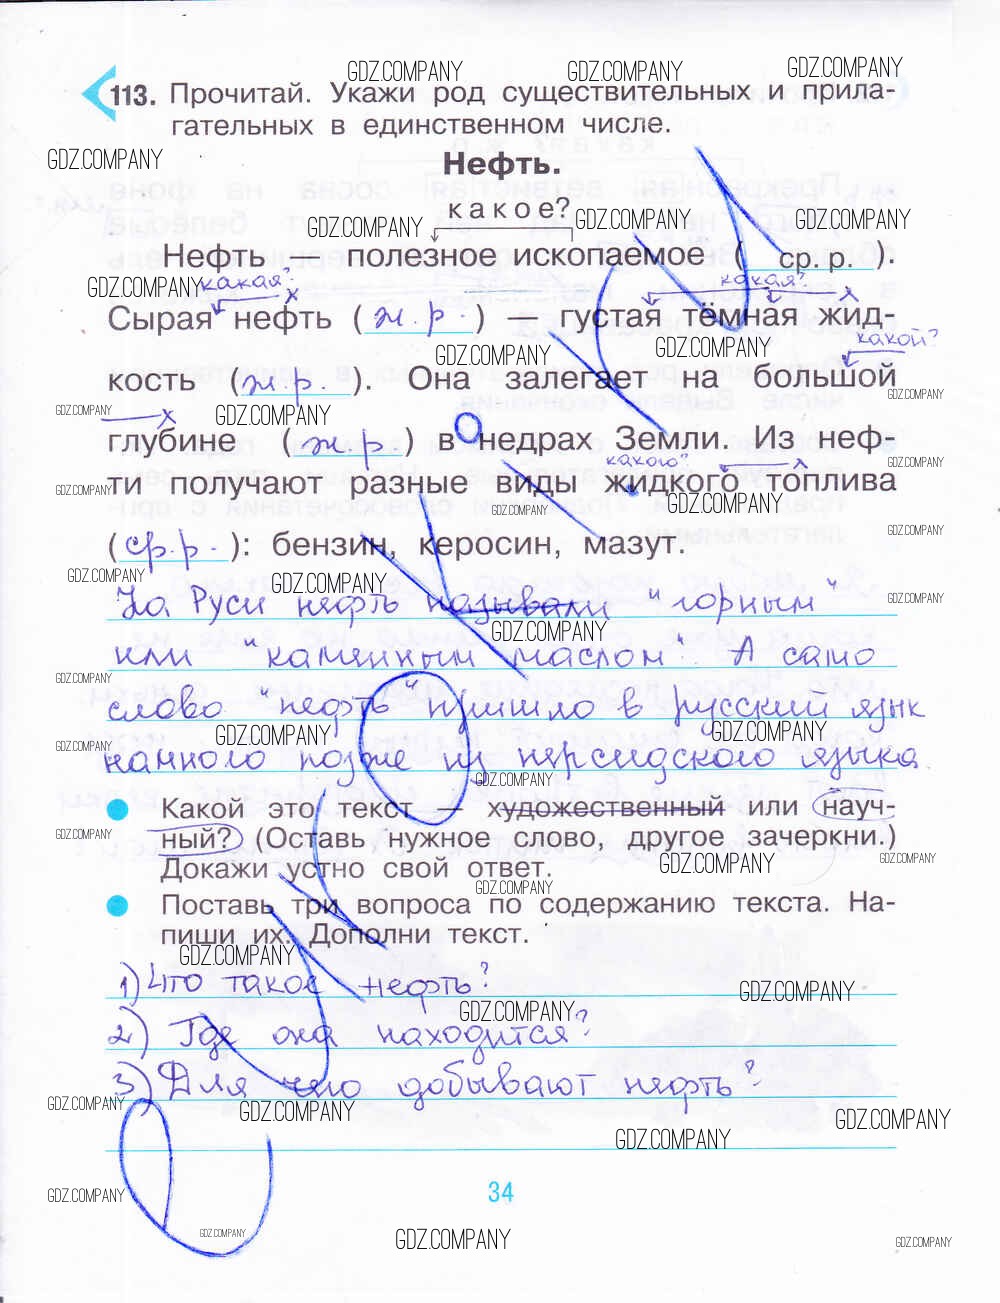 GDZ.COMPANY GDZ.COMPANY GDZ.COMPANY
113. Прочитай. Укажи род существительных и прила-
гательных в единственном числе.
GDZ.COMPANY
Нефть.
какое?
GDZ.COMPANY GDZ.COMPANY GDZ.COMPANY
Нефть — полезное ископаемое (ср. р.).
GDZ.COMPANY какая? х какая? х
Сырая нефть (ж. р.) — густая тёмная жид-
GDZ.COMPANY GDZ.COMPANY какой?
кость (ж. р.). Она залегает на большой
GDZ.COMPANY х GDZ.COMPANY GDZ.COMPANY
глубине (ж. р.) в недрах Земли. Из неф-
какого? х GDZ.COMPANY
ти получают разные виды жидкого топлива
GDZ.COMPANY GDZ.COMPANY GDZ.COMPANY
(ср. р.): бензин, керосин, мазут.
GDZ.COMPANY
GDZ.COMPANY GDZ.COMPANY
На Руси нефть называли "горным" GDZ.COMPANY
GDZ.COMPANY
или "каменным маслом". А само
GDZ.COMPANY
слово "нефть" пришло в русский язык
GDZ.COMPANY GDZ.COMPANY GDZ.COMPANY
намного позже из персидского языка
GDZ.COMPANY
Какой это текст — художественный или науч-
GDZ.COMPANY ный? (Оставь нужное слово, другое зачеркни.)
GDZ.COMPANY GDZ.COMPANY
Докажи устно свой ответ.
GDZ.COMPANY
Поставь три вопроса по содержанию текста. На-
пиши их. Дополни текст.
GDZ.COMPANY
1) Что такое нефть? GDZ.COMPANY
GDZ.COMPANY
2) Где она находится?
3) Для чего добывают нефть?
GDZ.COMPANY GDZ.COMPANY GDZ.COMPANY
GDZ.COMPANY
34
GDZ.COMPANY
GDZ.COMPANY GDZ.COMPANY GDZ.COMPANY